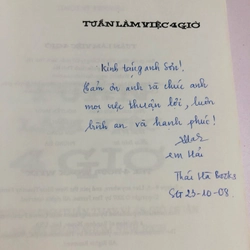 TUẦN LÀM VIỆC 4 GIỜ
Kính tặng anh Sơn!
Cảm ơn anh và chúc anh
mọi việc thuận lợi, luôn
bình an và hạnh phúc!
em Hải
Thái Hà Books
23-10-08